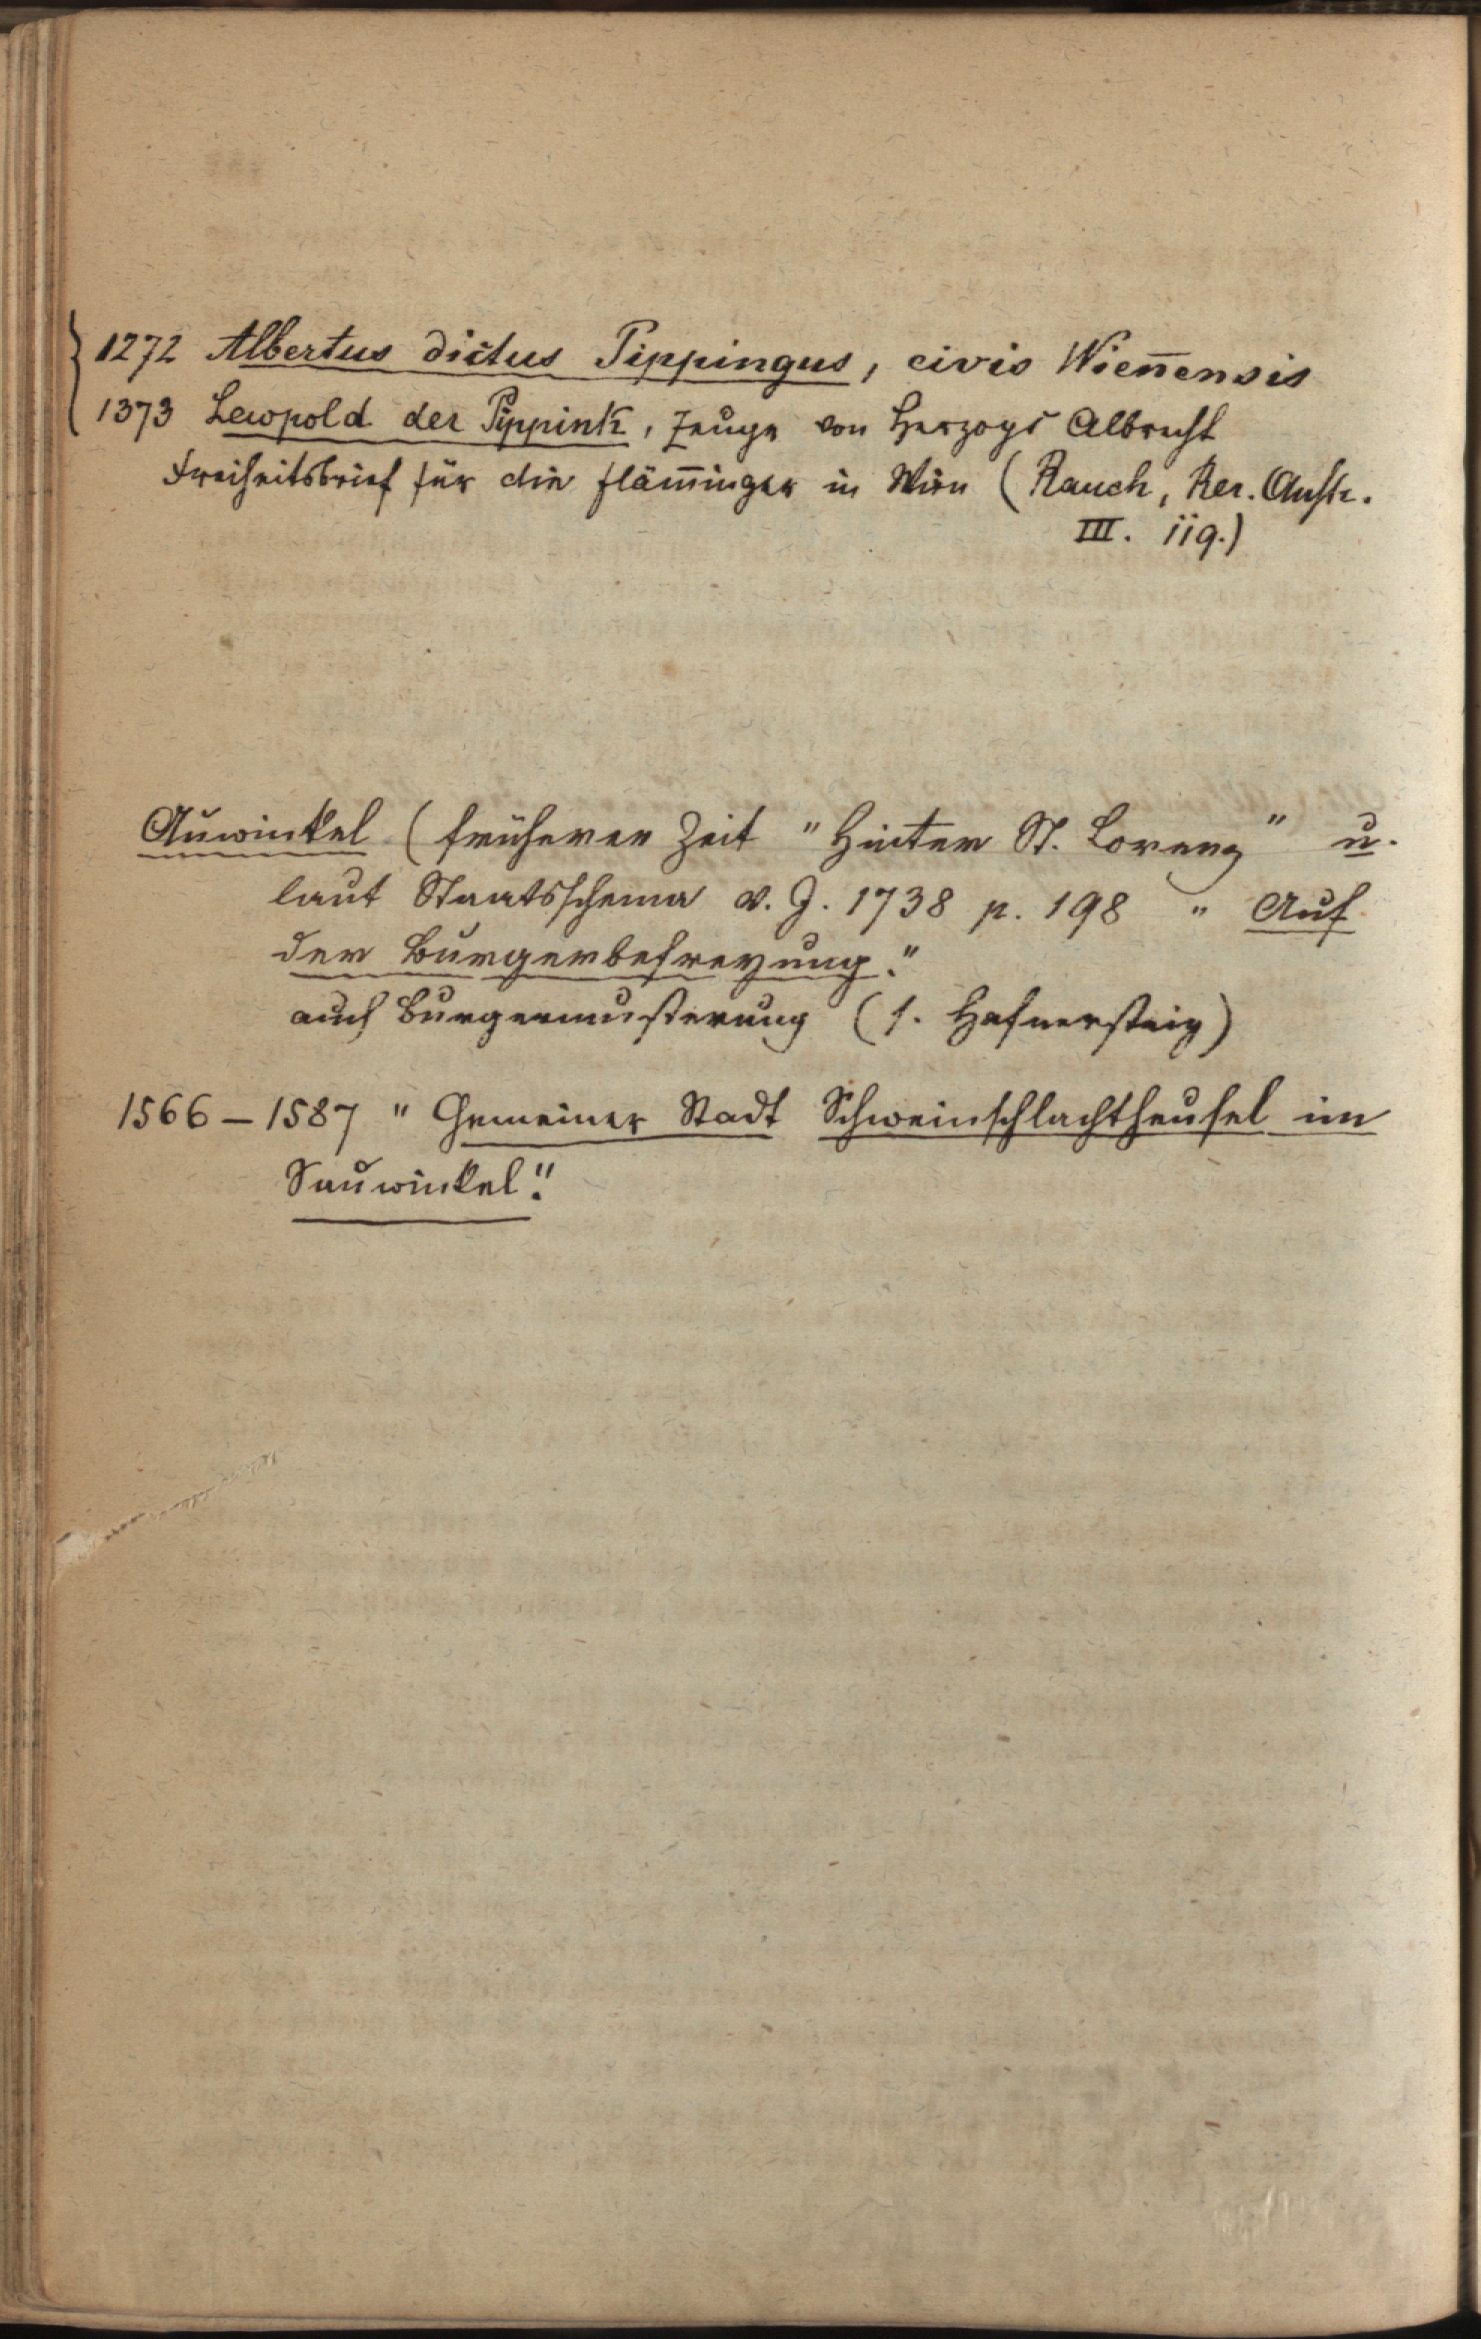 1272 Albertus dictus Pippingus, civis Wien̄ensis
1373 Lewpold der Pippink, Zeuge von Herzogs Albrecht
Freiheitsbrief für die Fläm̄inger in Wien (Rauch, Rer. Austr.
III. 119.)
Auwinkel (früherer Zeit "Hinter St. Lorenz" u.
laut Staatsschema v. J. 1738 p. 198 " Auf
der Burgerbefreyung."
auch Burgermusterung (s. Hafnersteig)
1566 – 1587 " Gemeiner Stadt Schweinschlachtheusel im
Sauwinkel".